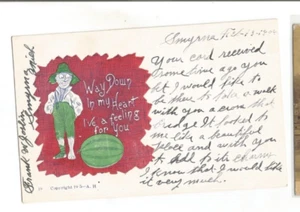 Smyrna
Your card received
some time ago you
bet I would like to
be there to take a walk
with you across that
bridge It looked to
me like a beautiful
place and with you
to add to its charm
I know that I would like
it very much.
Way Down
in my Heart
I've a feeling
for You
Frank
Smyrna
Mich
Copyright